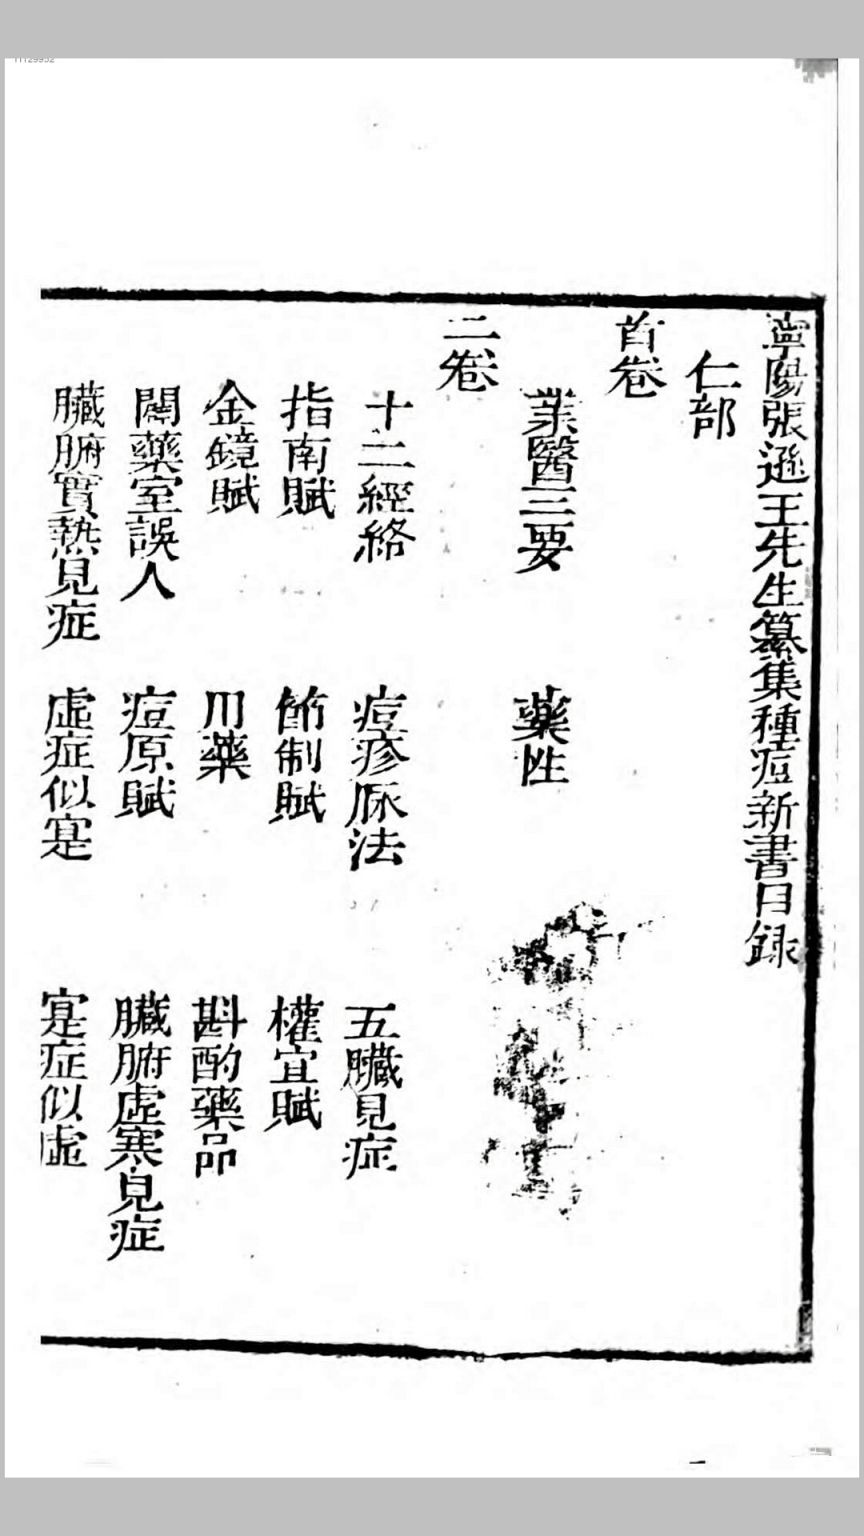 寧陽張遜王先生纂集種痘新書目录
仁部
首卷
業醫三要 藥性
二卷
十二經絡 痘疹脈法 五臟見症
指南賦 節制賦 權宜賦
金鏡賦 用藥 斟酌藥品
閙藥室誤人 痘原賦 臟腑虛寒見症
臟腑實熱見症 虛症似寔 寔症似虛